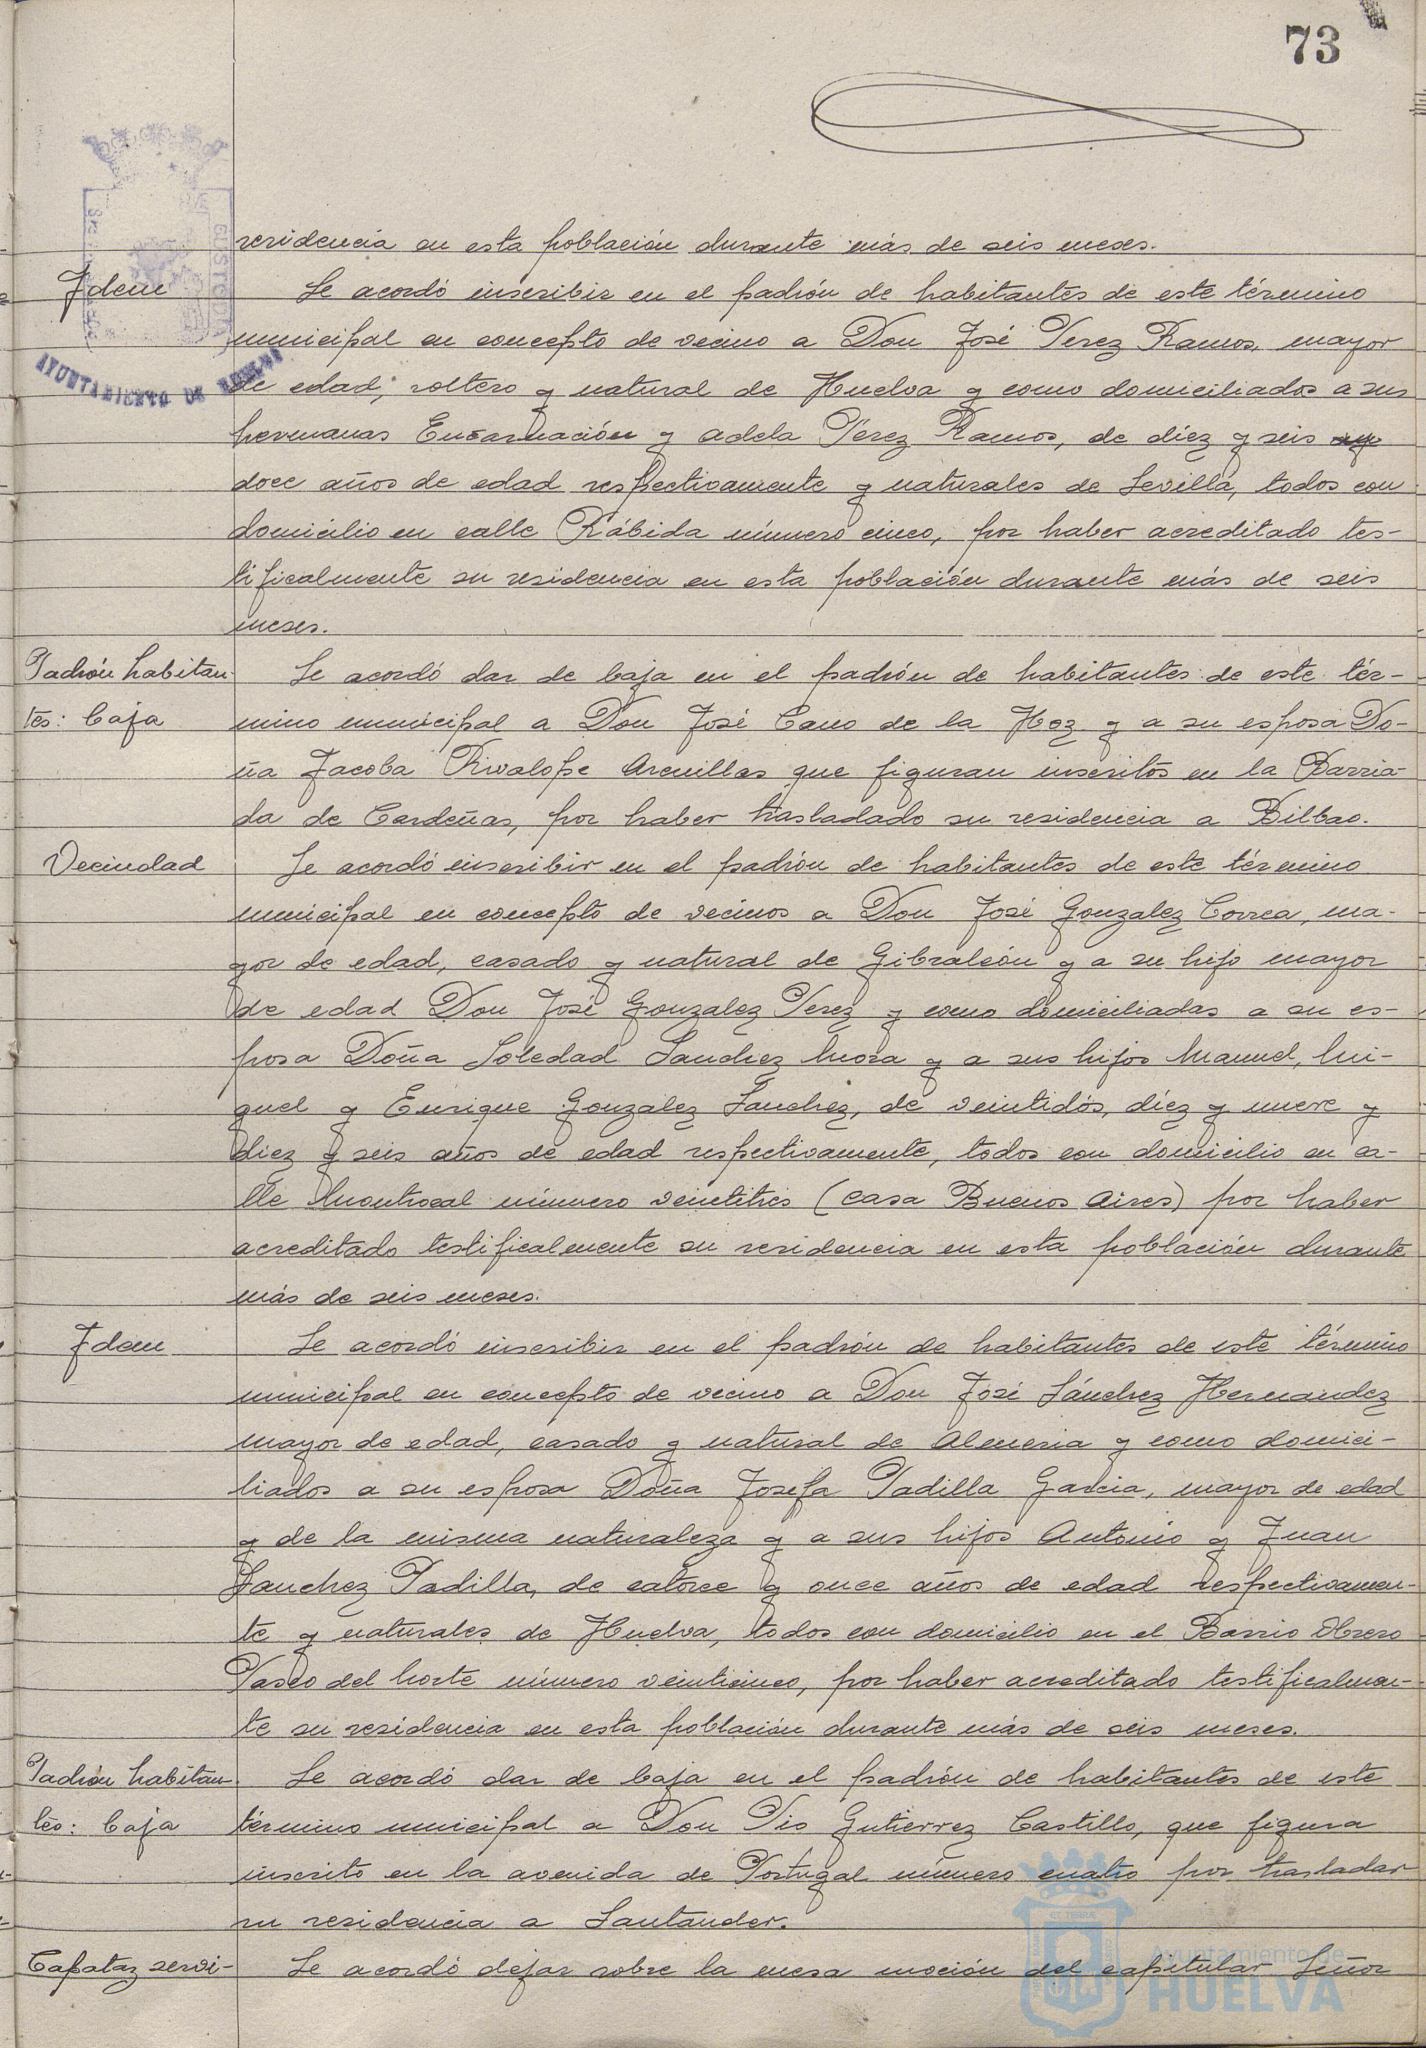 73
residencia en esta población durante más de seis meses.
Idem
Se acordó inscribir en el padrón de habitantes de este término
municipal en concepto de vecino a Don José Perez Ramos, mayor
de edad, soltero y natural de Huelva y como domiciliados a sus
hermanas Encarnación y Adela Pérez Ramos, de diez y seis
doce años de edad respectivamente y naturales de Sevilla, todos con
domicilio en calle Rábida número cinco, por haber acreditado tes-
tificalmente su residencia en esta población durante más de seis
meses.
Padrón habitan-
tes: baja
Se acordó dar de baja en el padrón de habitantes de este tér-
mino municipal a Don José Cano de la Hoz y a su esposa Do-
ña Jacoba Rivalope Arenillas que figuran inscritos en la Barria-
da de Cardeñas, por haber trasladado su residencia a Bilbao.
Vecindad
Se acordó inscribir en el padrón de habitantes de este término
municipal en concepto de vecinos a Don José Gonzalez Correa, ma-
yor de edad, casado y natural de Gibraleón y a su hijo mayor
de edad Don José Gonzalez Perez y como domiciliadas a su es-
posa Doña Soledad Sanchez Mora y a sus hijos Manuel, Mi-
guel y Enrique Gonzalez Sanchez, de veintidós, diez y nueve y
diez y seis años de edad respectivamente, todos con domicilio en ca-
lle Montrocal número veintitres (casa Buenos Aires) por haber
acreditado testificalmente su residencia en esta población durante
más de seis meses.
Idem
Se acordó inscribir en el padrón de habitantes de este término
municipal en concepto de vecino a Don José Sánchez Hernandez
mayor de edad, casado y natural de Almeria y como domici-
liados a su esposa Doña Josefa Padilla Garcia, mayor de edad
y de la misma naturaleza y a sus hijos Antonio y Juan
Sanchez Padilla, de catorce y once años de edad respectivamen-
te y naturales de Huelva, todos con domicilio en el Barrio Obrero
Paseo del Norte número veinticinco, por haber acreditado testificalmen-
te su residencia en esta población durante más de seis meses.
Padrón habitan-
tes: baja
Se acordó dar de baja en el padrón de habitantes de este
término municipal a Don Pio Gutierrez Castillo, que figura
inscrito en la avenida de Portugal número cuatro por trasladar
su residencia a Santander.
Capataz servi-
Se acordó dejar sobre la mesa moción del capitular Señor
AYUNTAMIENTO DE HUELVA
Ayuntamiento de
HUELVA